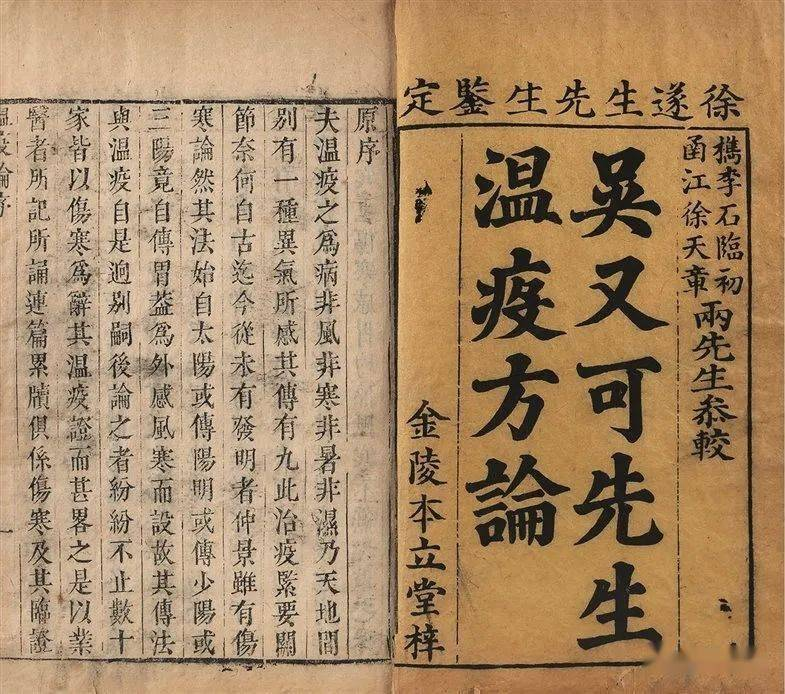 徐遂生先生鑒定
檇李石臨初
甬江徐天章
兩先生叅較
吳又可先生
溫疫方論
金陵本立堂梓
原序
夫溫疫之為病非風非寒非暑非濕乃天地間
別有一種異氣所感其傳有九此治疫緊要關
節奈何自古迄今從未有發明者仲景雖有傷
寒論然其法始自太陽或傳陽明或傳少陽或
三陽竟自傳胃葢為外感風寒而設故其傳法
與溫疫自是迥別嗣後論之者紛紛不止數十
家皆以傷寒為辭其溫疫證而甚畧之是以業
醫者所記所誦連篇累牘俱係傷寒及其臨證
溫疫論序
一